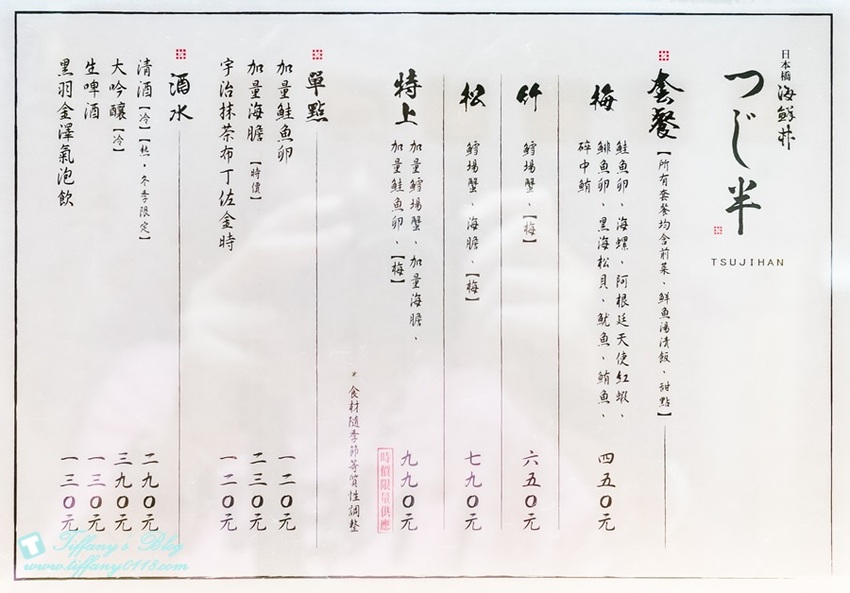 日本橋 海鮮丼
つじ半
TSUJIHAN
套餐【所有套餐均含前菜、鮮魚湯清飯、甜點】
梅
鮭魚卵、海螺、阿根廷天使紅蝦、
鯡魚卵、黑海松貝、魷魚、鮪魚、
碎中鮪
四五0元
竹
鱈場蟹、【梅】
六五0元
松
鱈場蟹、海膽、【梅】
七九0元
特上
加量鱈場蟹、加量海膽、
加量鮭魚卵、【梅】
九九0元
時價限量供應
*食材隨季節等質性調整
單點
加量鮭魚卵 一二0元
加量海膽【時價】 二三0元
宇治抹茶布丁佐金時 一二0元
酒水
清酒【冷】【熱，冬季限定】 二九0元
大吟釀【冷】 三九0元
生啤酒 一三0元
黑羽金澤氣泡飲 一三0元
Tiffany's Blog
www.tiffany0118.com